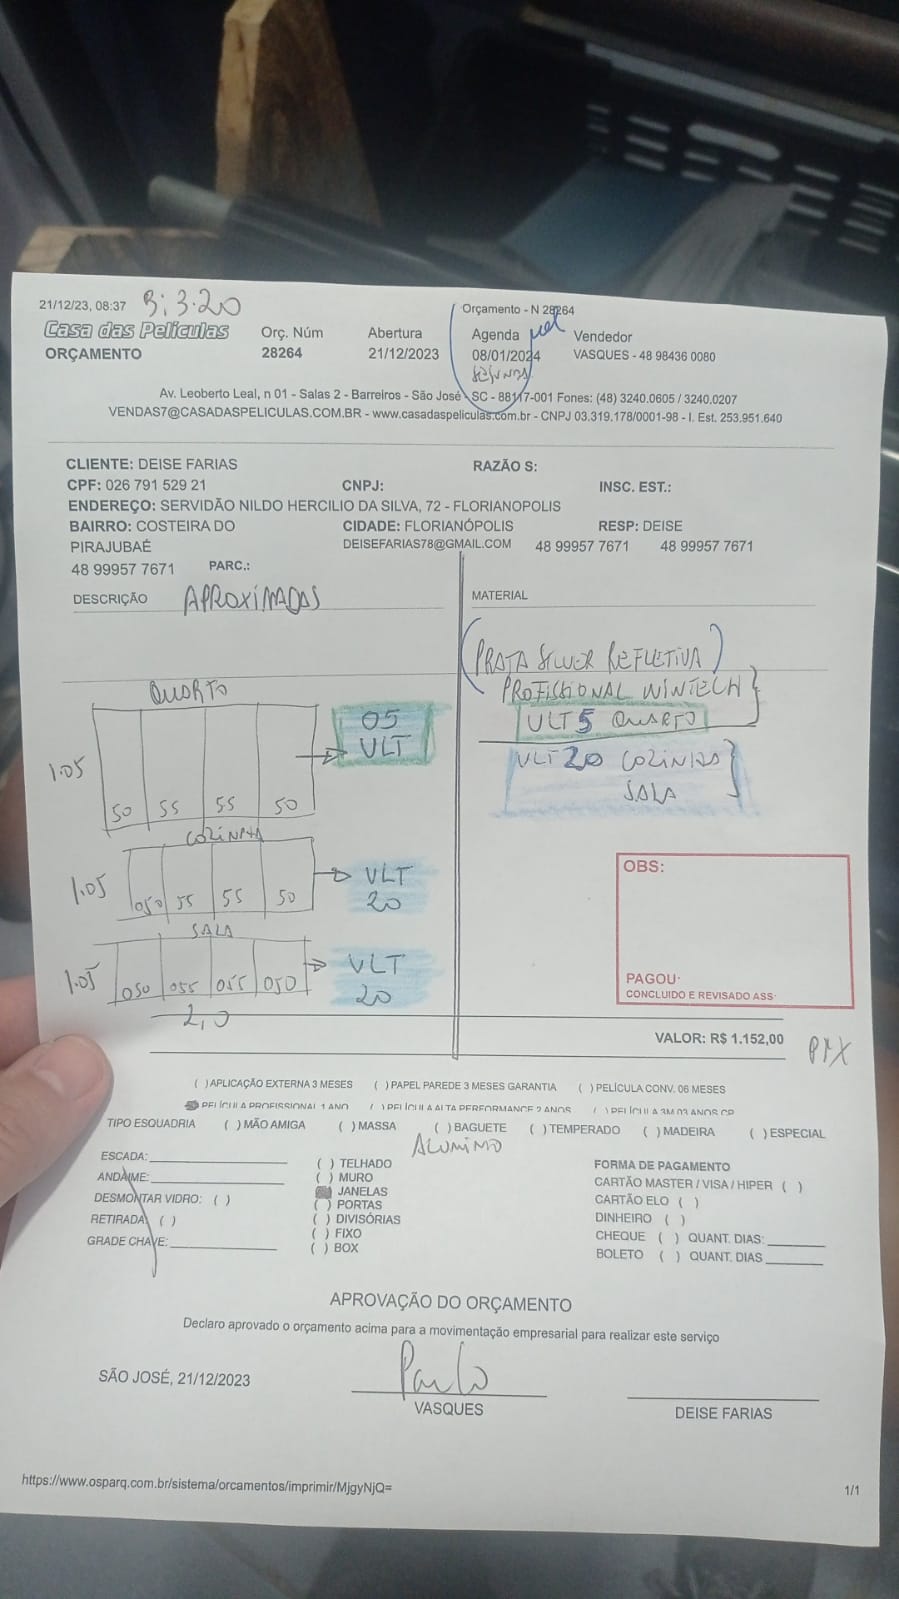 21/12/23, 08:37 B; 3.20
Orçamento - N 28264
Casa das Películas
ORÇAMENTO
Orç. Núm
28264
Abertura
21/12/2023
Agenda
08/01/2024
SEGUNDA
Vendedor
VASQUES - 48 98436 0080
Av. Leoberto Leal, n 01 - Salas 2 - Barreiros - São José - SC - 88117-001 Fones: (48) 3240.0605 / 3240.0207
VENDAS7@CASADASPELICULAS.COM.BR - www.casadaspeliculas.com.br - CNPJ 03.319.178/0001-98 - I. Est. 253.951.640
CLIENTE: DEISE FARIAS RAZÃO S:
CPF: 026 791 529 21 CNPJ: INSC. EST.:
ENDEREÇO: SERVIDÃO NILDO HERCILIO DA SILVA, 72 - FLORIANOPOLIS
BAIRRO: COSTEIRA DO CIDADE: FLORIANÓPOLIS RESP: DEISE
PIRAJUBAÉ DEISEFARIAS78@GMAIL.COM 48 99957 7671 48 99957 7671
48 99957 7671 PARC.:
DESCRIÇÃO APROXIMADAS
MATERIAL
(PRATA SILVER REFLETIVA)
PROFISSIONAL WINTECH
VLT 5 QUARTO
VLT 20 COZINHA
SALA
QUARTO
1.05
50 55 55 50
05
VLT
COZINHA
1.05
050 55 55 50
VLT
20
SALA
1.05
050 055 055 050
VLT
20
2,0
OBS:
PAGOU:
CONCLUIDO E REVISADO ASS:
VALOR: R$ 1.152,00 PIX
( ) APLICAÇÃO EXTERNA 3 MESES ( ) PAPEL PAREDE 3 MESES GARANTIA ( ) PELÍCULA CONV. 06 MESES
PELÍCULA PROFISSIONAL 1 ANO ( ) PELÍCULA ALTA PERFORMANCE 2 ANOS ( ) PELÍCULA 3M 03 ANOS CP
TIPO ESQUADRIA ( ) MÃO AMIGA ( ) MASSA ( ) BAGUETE ( ) TEMPERADO ( ) MADEIRA ( ) ESPECIAL
ALUMINIO
ESCADA:
ANDAIME:
DESMONTAR VIDRO: ( )
RETIRADA: ( )
GRADE CHAVE:
( ) TELHADO
( ) MURO
JANELAS
( ) PORTAS
( ) DIVISÓRIAS
( ) FIXO
( ) BOX
FORMA DE PAGAMENTO
CARTÃO MASTER / VISA / HIPER ( )
CARTÃO ELO ( )
DINHEIRO ( )
CHEQUE ( ) QUANT. DIAS:
BOLETO ( ) QUANT. DIAS
APROVAÇÃO DO ORÇAMENTO
Declaro aprovado o orçamento acima para a movimentação empresarial para realizar este serviço
SÃO JOSÉ, 21/12/2023
Paulo
VASQUES
DEISE FARIAS
https://www.osparq.com.br/sistema/orcamentos/imprimir/MjgyNjQ=
1/1